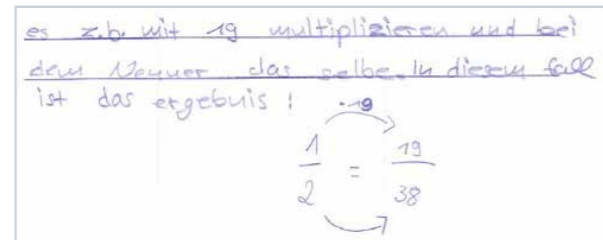 es z.b. mit 19 multiplizieren und bei
dem Nenner das selbe. In diesem fall
ist das ergebnis :
·19
1/2 = 19/38